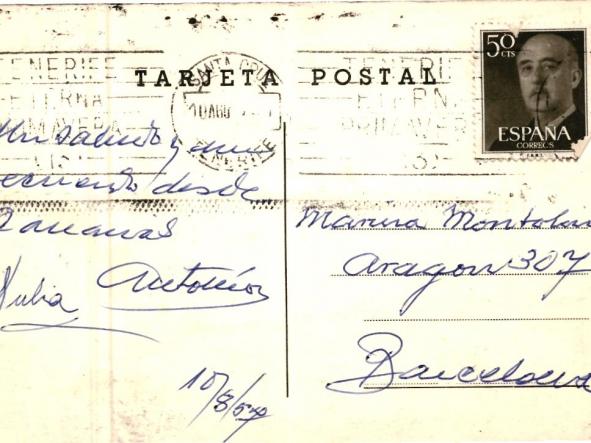 TARJETA POSTAL
TENERIFE
ETERNA
PRIMAVERA
SANTA CRUZ
10 AGO
TENERIFE
TENERIFE
ETERN
PRIMAVER
50
CTS
ESPAÑA
CORREOS
Un saludo y un
recuerdo desde
Canarias
Nuria Antonio
10/8/59
Marina
Aragon 307
Barcelona